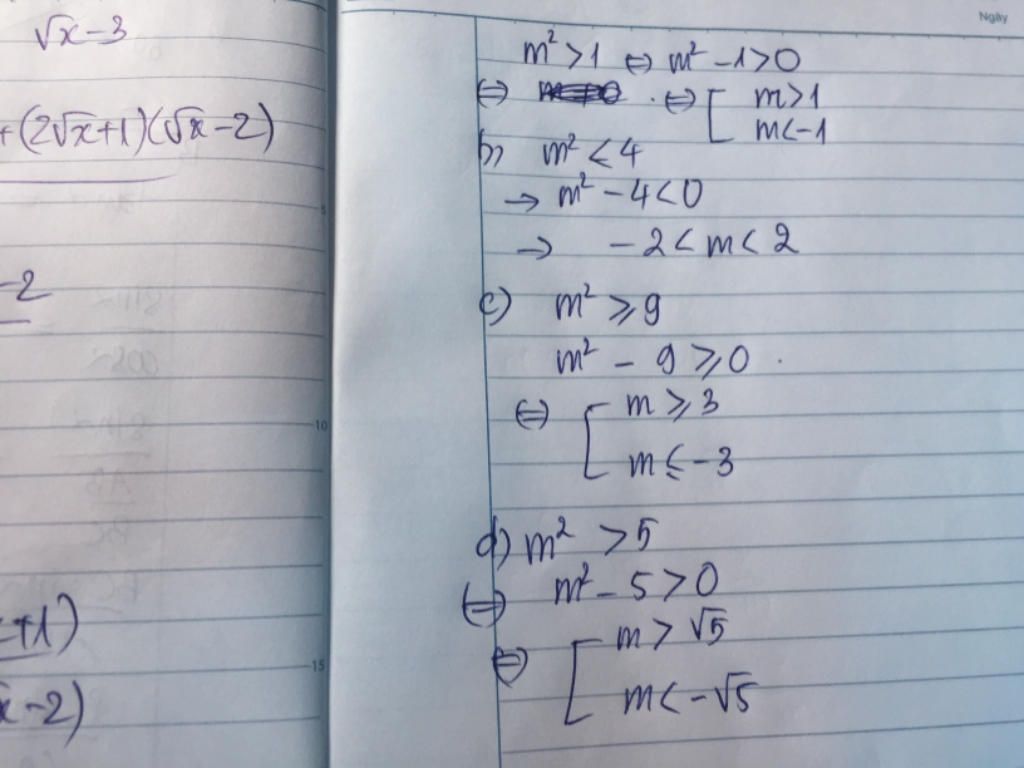 √x-3
+(2√x+1)(√x-2)
-2
+1)
x-2)
Ngày
m² > 1 ⇔ m² - 1 > 0
⇔ . ⇔ [ m > 1
m < -1
b) m² < 4
→ m² - 4 < 0
→ -2 < m < 2
c) m² ⩾ 9
m² - 9 ⩾ 0 .
⇔ [ m ⩾ 3
m ⩽ -3
d) m² > 5
⇔ m² - 5 > 0
⇔ [ m > √5
m < -√5
5
10
15